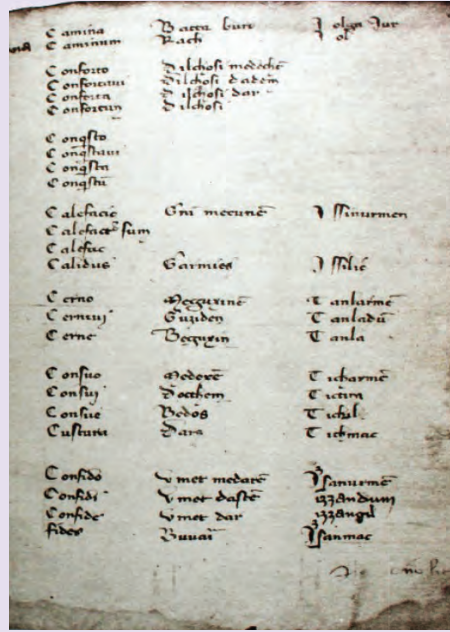 Camina Batta buro Jolga Jur
Caminum Rach Jol
Conforto Dilchosi medehē
Confortaui Dilchosi dadem
Conforta Dilchosi dar
Confortun Dilchosi
Conqsto
Conqstaui
Conqsta
Conqstū
Calefacio Grā mecunē Issinurmen
Calefact sum
Calefac
Calidus Garmies Issilic
Cerno Meguxinē Tanlarmē
Cernui Guziden Tanladū
Cerne Beguxin Tanla
Consuo Mederē Ticharmē
Consuj Docthem Tictim
Consue Bedos Tichil
Custura Dars Tichmac
Confido Vmet medarē Isanurmē
Confidi Vmet dastē izzandum
Confide Vmet dar izzangil
fides Buuar Isanmac